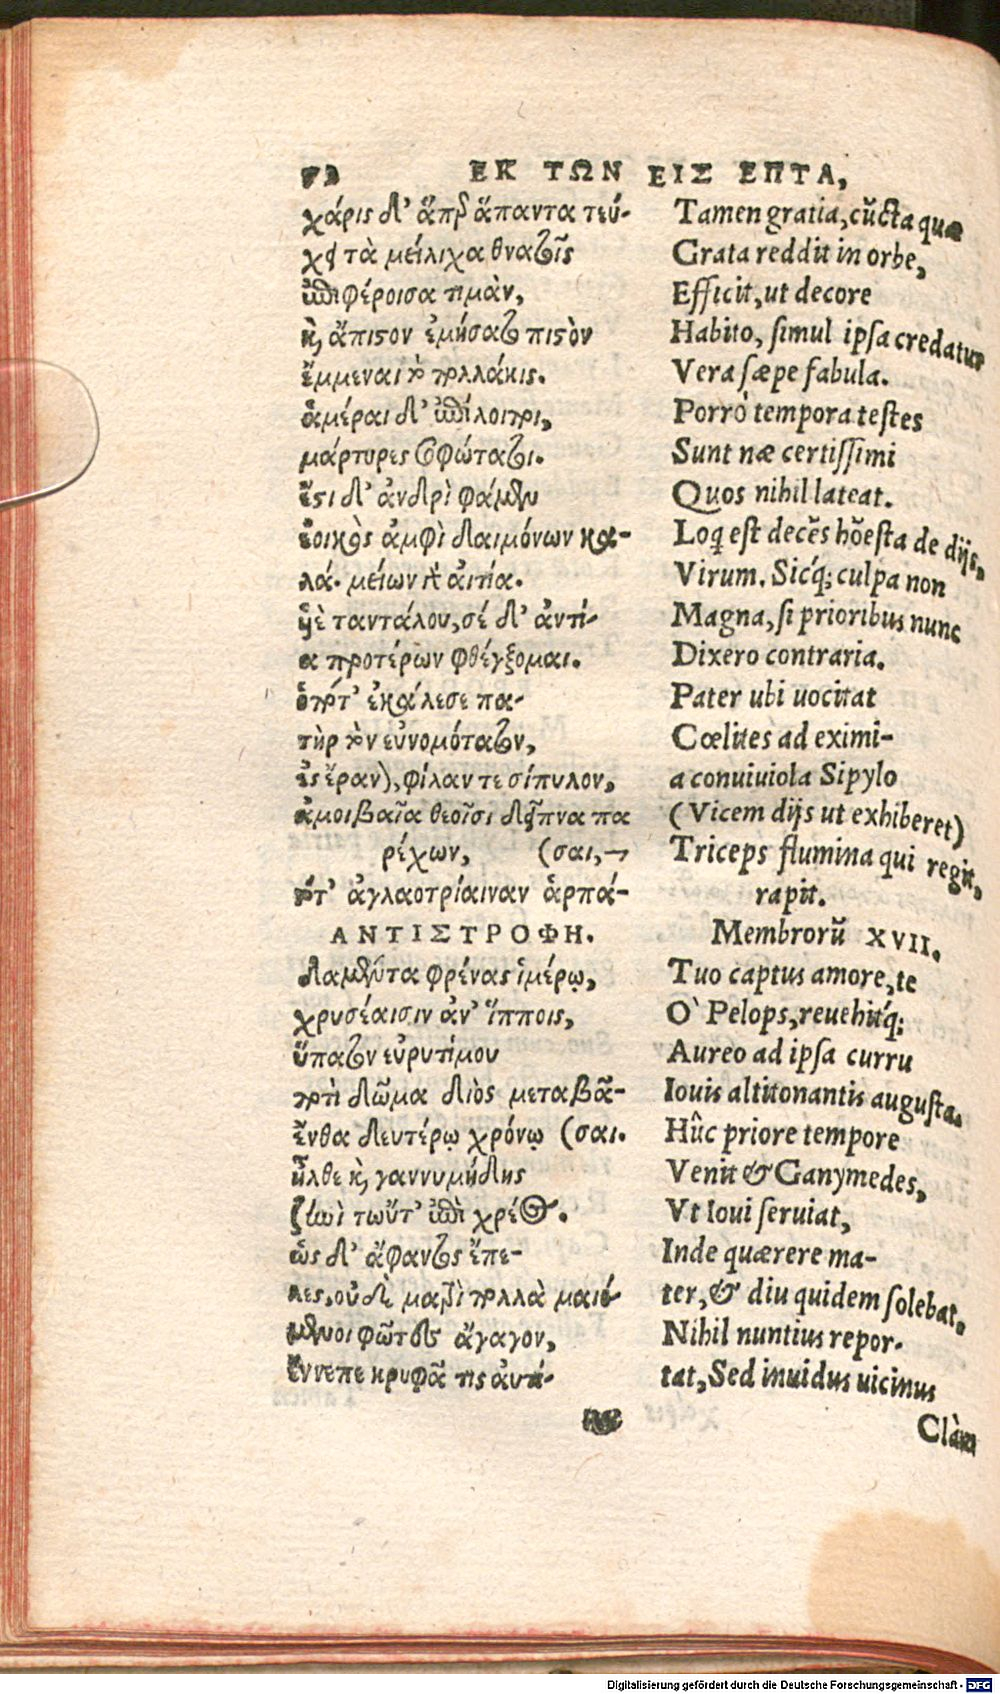 72 ΕΚ ΤΩΝ ΕΙΣ ΕΠΤΑ,
χάρις δ' ἅπερ ἅπαντα τεύ-
χει τὰ μείλιχα θνατοῖς
ἐπιφέροισα τιμὰν,
κ, ἄπιστον ἐμήσατο πιστὸν
ἔμμεναι τὸ πολλάκις.
ἁμέραι δ' ἐπίλοιποι,
μάρτυρες σοφώτατοι.
ἔστι δ' ἀνδρὶ φάμεν
ἐοικὸς ἀμφὶ δαιμόνων κα-
λά. μείων γὰρ αἰτία.
υἱὲ ταντάλου, σέ δ' ἀντί-
α προτέρων φθέγξομαι.
ὁπότ' ἐκάλεσε πα-
τὴρ τὸν εὐνομότατον,
ἐς ἔρανον, φίλαν τε σίπυλον,
ἀμοιβαῖα θεοῖσι δεῖπνα πα
ρέχων, (σαι,
τότ' ἀγλαοτρίαιναν ἁρπά-
ΑΝΤΙΣΤΡΟΦΗ.
δαμέντα φρένας ἱμέρῳ,
χρυσέαισιν ἀν' ἵπποις,
ὕπατον εὐρυτίμου
ποτὶ δῶμα διὸς μεταβᾶ-
ἔνθα δευτέρῳ χρόνῳ (σαι.
ἦλθε κ, γαννυμήδης
ζηνὶ τωὔτ' ἐπὶ χρέος.
ὡς δ' ἄφαντος ἔπε-
λες, οὐδὲ ματρὶ πολλὰ μαιό
μενοι φῶτες ἄγαγον,
ἔννεπε κρυφᾶ τις αὐτί-
κα
Tamen gratia, cũcta quæ
Grata reddit in orbe,
Efficit, ut decore
Habito, simul ipsa credatur
Vera sæpe fabula.
Porrò tempora testes
Sunt næ certissimi
Quos nihil lateat.
Loq est decẽs hõesta de dijs,
Virum. Sicq́; culpa non
Magna, si prioribus nunc
Dixero contraria.
Pater ubi uocitat
Cœlites ad eximi-
a conuiuiola Sipylo
(Vicem dijs ut exhiberet)
Triceps flumina qui regit,
rapit.
Membrorũ XVII.
Tuo captus amore, te
O` Pelops, reuehitq́;
Aureo ad ipsa curru
Iouis altitonantis augusta.
Hûc priore tempore
Venit & Ganymedes,
Vt Ioui seruiat,
Inde quærere ma-
ter, & diu quidem solebat.
Nihil nuntius repor-
tat, Sed inuidus uicinus
Clàm
Digitalisierung gefördert durch die Deutsche Forschungsgemeinschaft - DFG